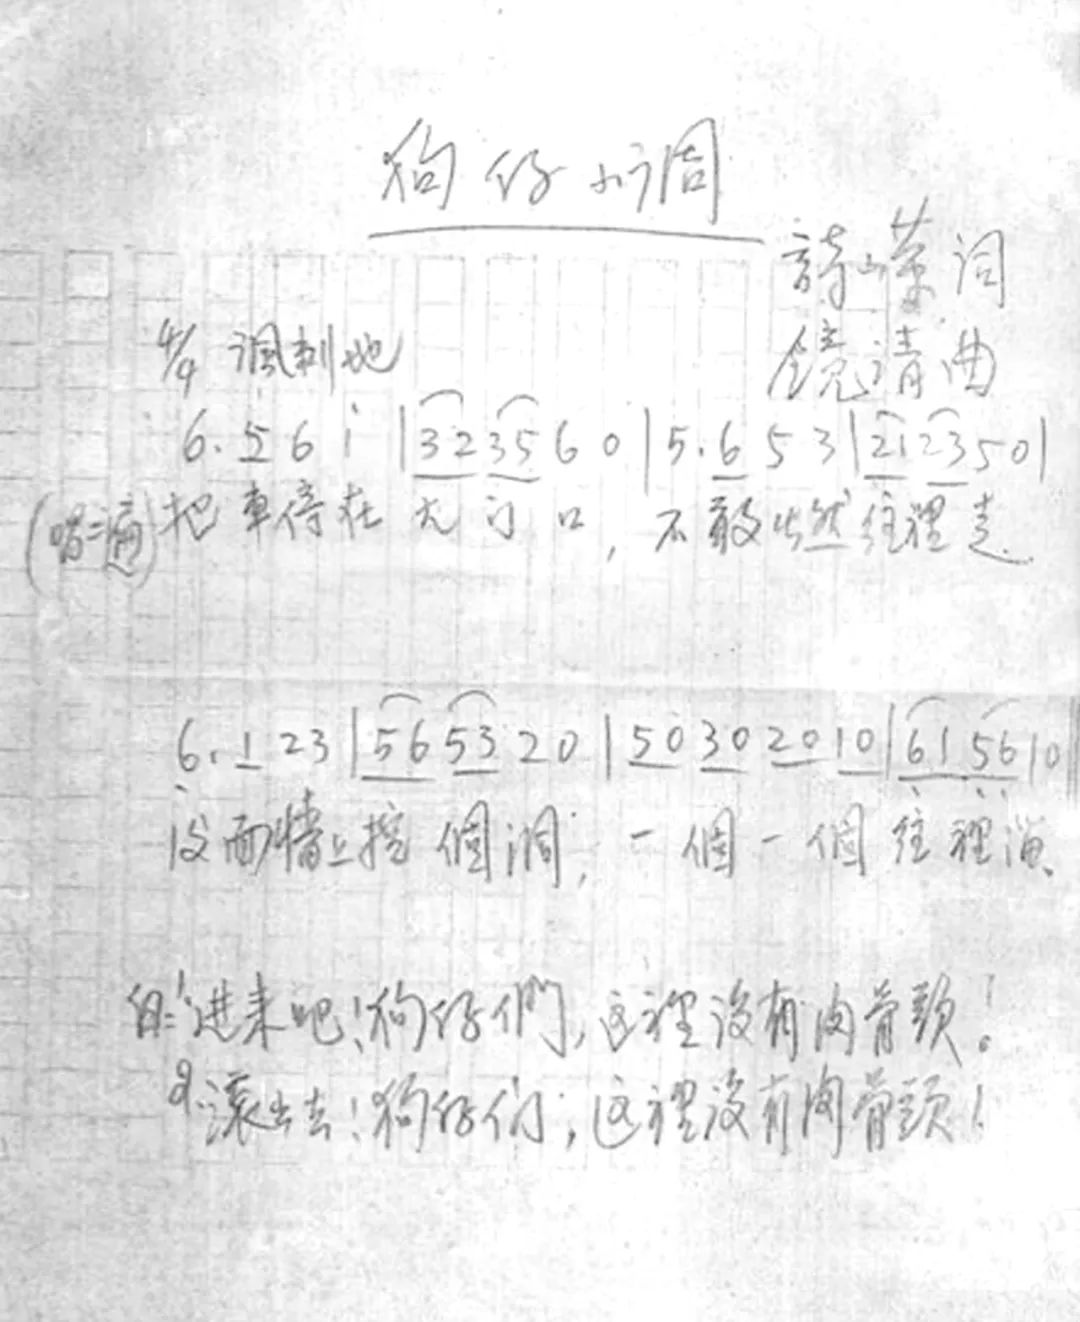 狗仔小调
詩山蒙词
镜清曲
4/4 諷刺地
6. 5 6 i | 32 35 6 0 | 5. 6 5 3 | 21 23 5 0 |
(唱二遍) 把車停在大门口，不敢当然往裡走.
6. 1 2 3 | 56 53 2 0 | 50 30 20 10 | 61 56 1 0 ‖
没面牆上挖個洞，一個一個往裡溜、
白：1、进来吧！狗仔們，这裡没有肉骨頭！
2、滚出去！狗仔们，这裡没有肉骨頭！